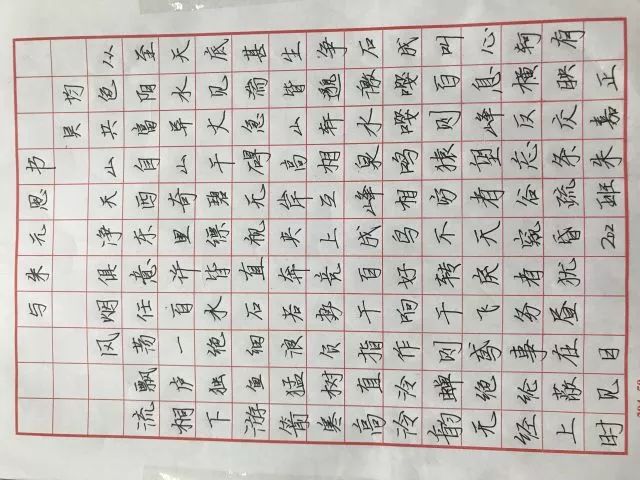 与朱元思书
吴均
风烟俱净天山共色从
流飘荡任意东西自富阳至
桐庐一百许里奇山异水天
下独绝水皆缥碧千丈见底
游鱼细石直视无碍急湍甚
箭猛浪若奔夹岸高山皆生
寒树负势竞上互相轩邈争
高直指千百成峰泉水激石
泠泠作响好鸟相鸣嘤嘤成
韵蝉则千转不穷猿则百叫
无绝鸢飞戾天者望峰息心
经纶事务者窥谷忘反横柯
上蔽在昼犹昏疏条交映有
时见日 202班朱嘉正